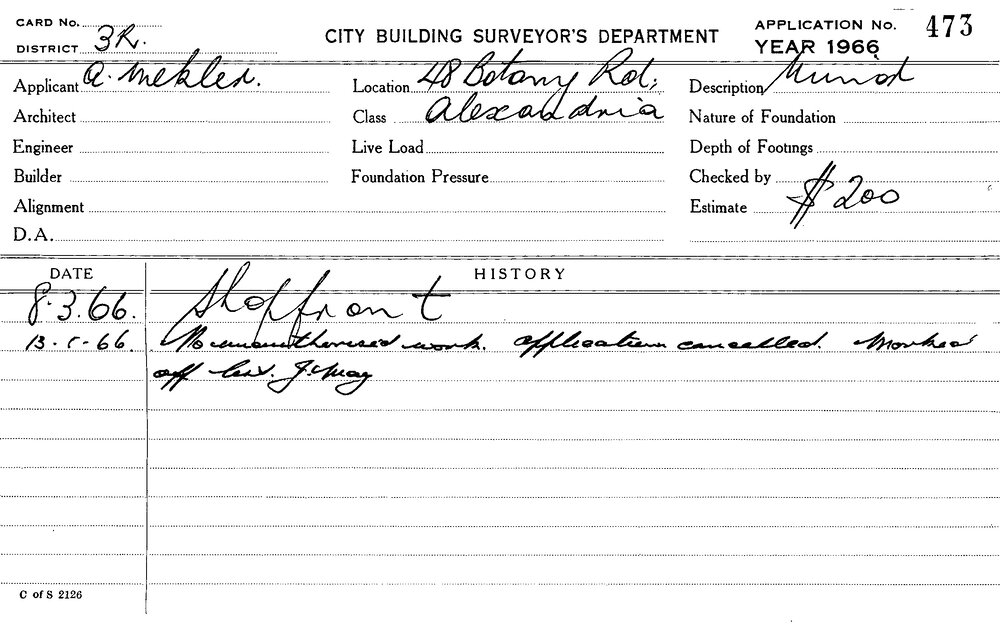 CARD No.
DISTRICT 3R.
CITY BUILDING SURVEYOR'S DEPARTMENT
APPLICATION No. 473
YEAR 1966
Applicant A. Mekler.
Location 48 Botany Rd;
Description Minor
Architect
Class Alexandria
Nature of Foundation
Engineer
Live Load
Depth of Footings
Builder
Foundation Pressure
Checked by
Alignment
Estimate $200
D.A.
DATE HISTORY
8.3.66. Shopfront
13. 5. 66. No unauthorised work. Application cancelled. Marked
off list. J. May
C of S 2126